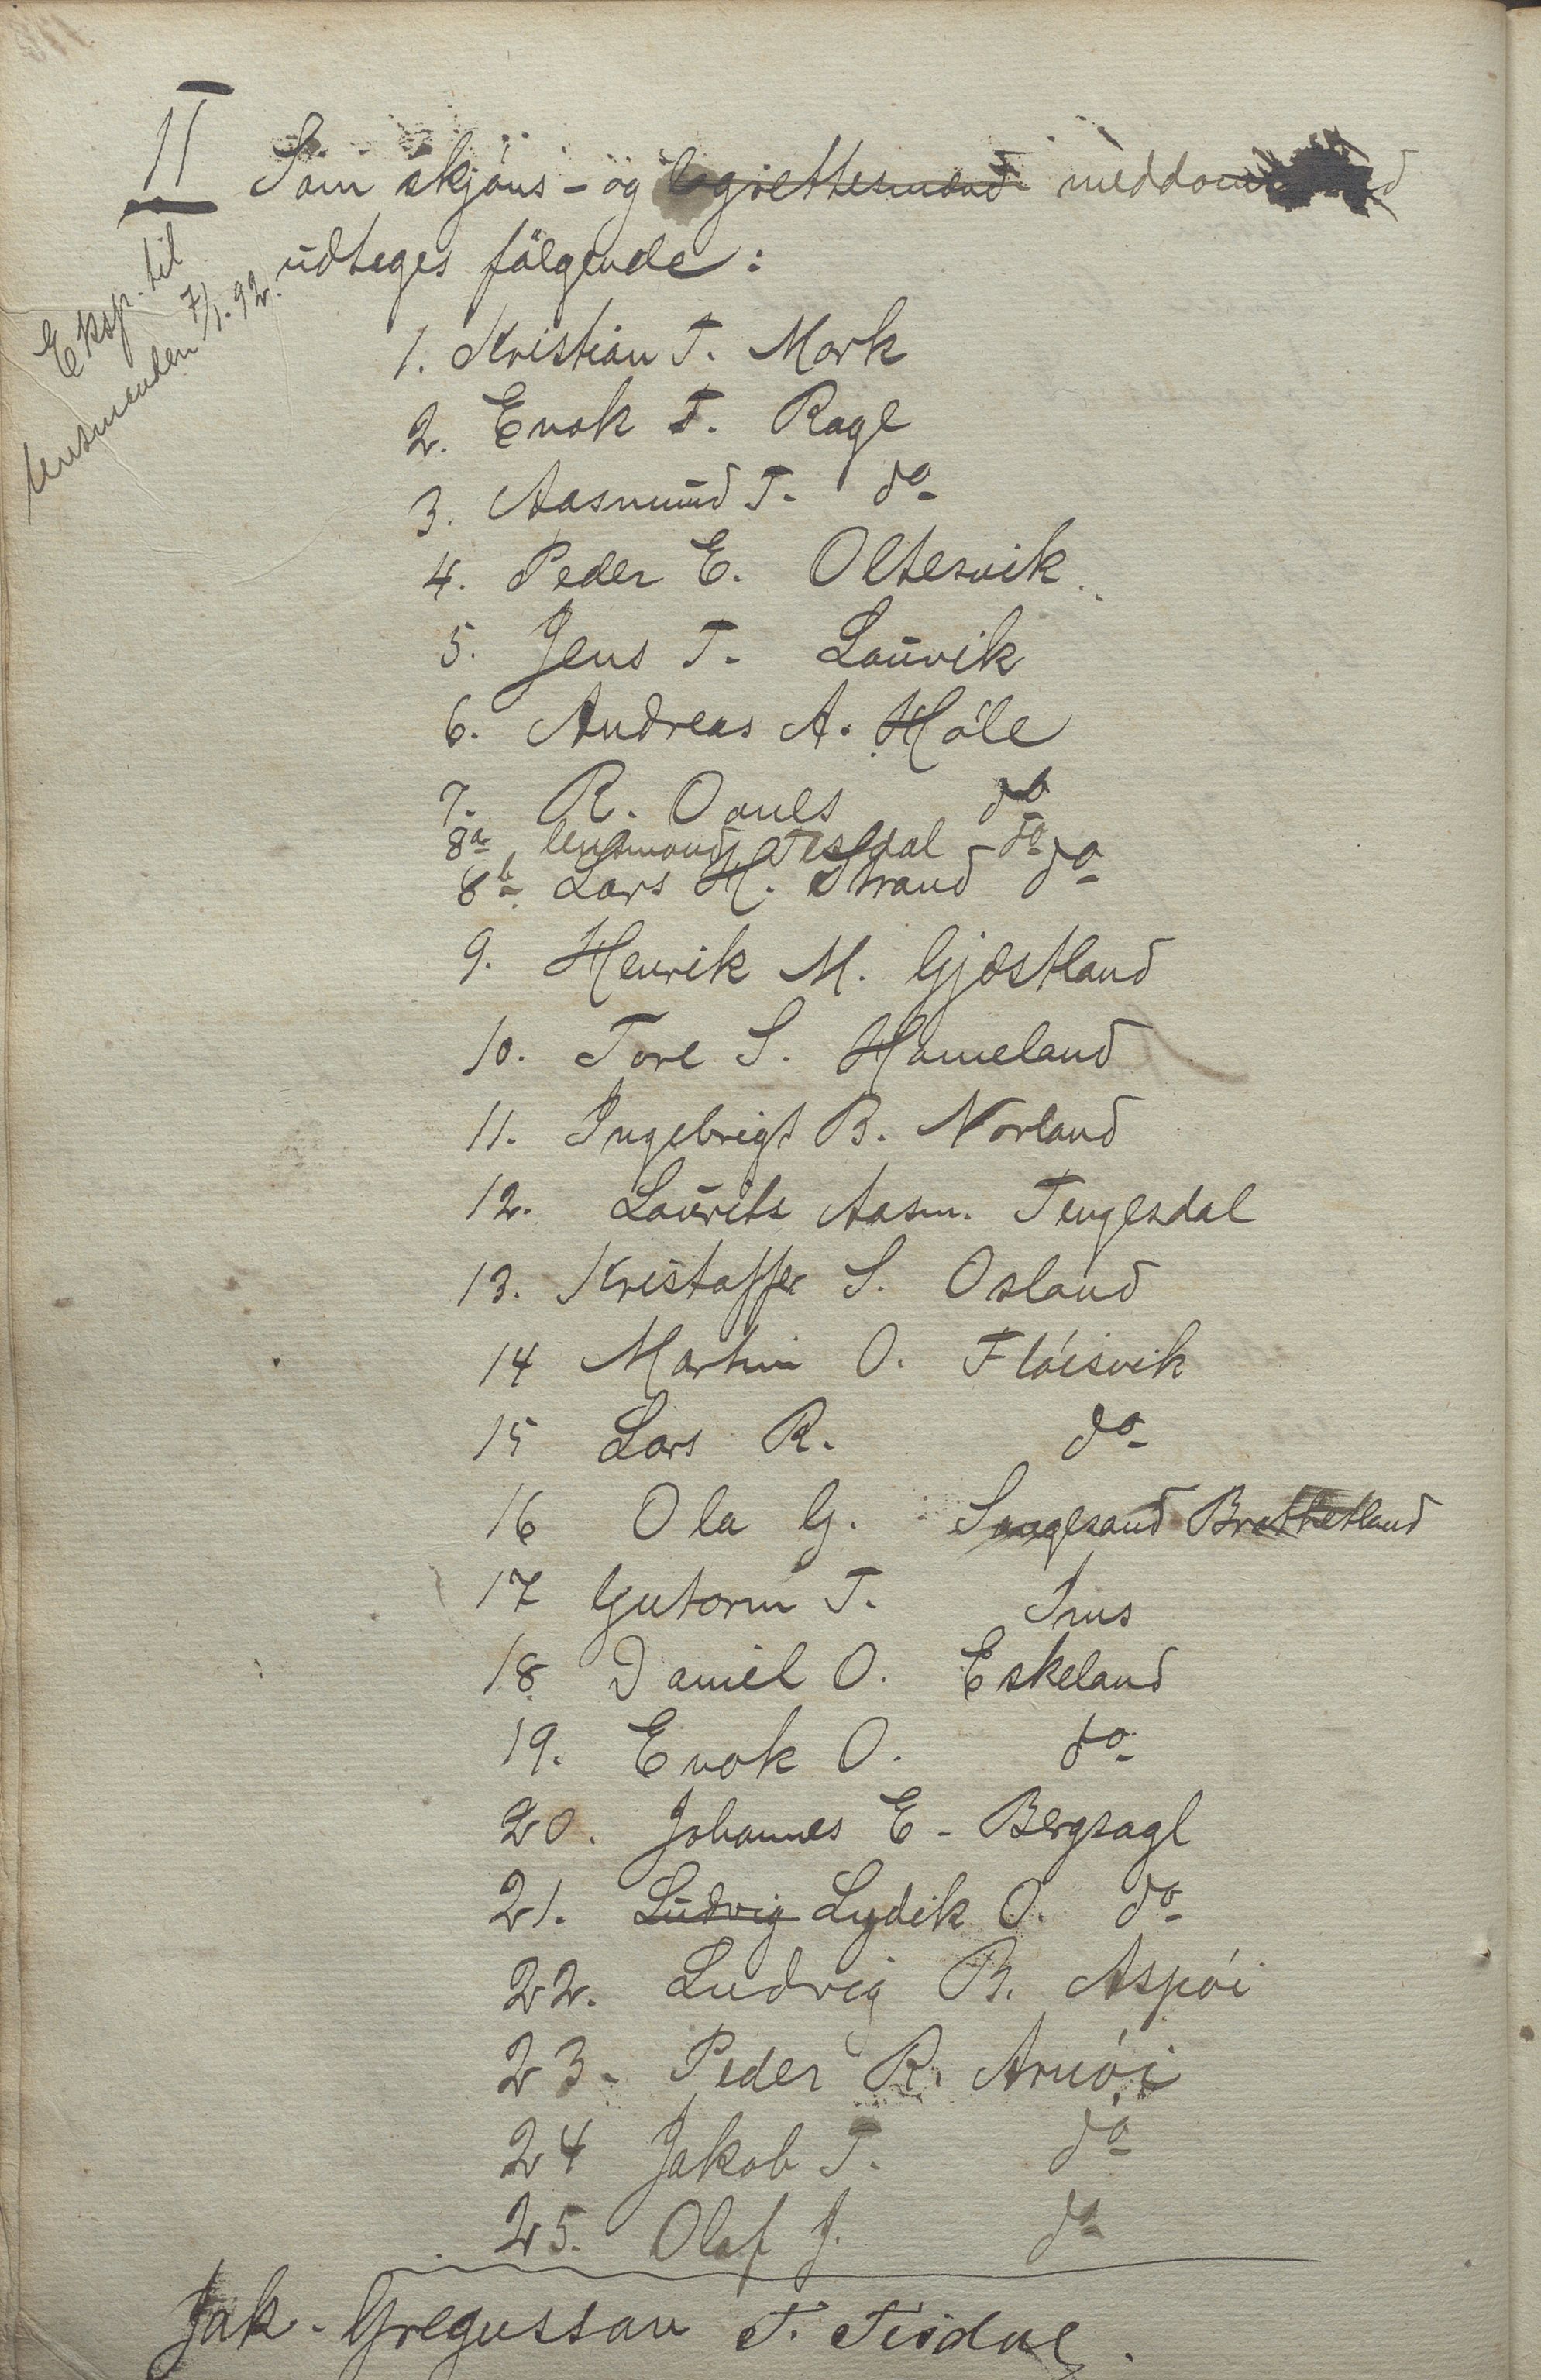 II
Som skjöns- og lagrettesmænd meddoms
udtages fölgende:
Eksp. til
lensmanden 7/1.92.
1. Kristian T. Mork
2. Enok T. Rage
3. Aasmund T. do
4. Peder E. Oltesvik
5. Jens T. Lauvik
6. Andreas A. Höle
7. R. Oanes do
8a lensmand Tjesdal do
8b. Lars H. Strand do
9. Henrik M. Gjæstland
10. Tore S. Hameland
11. Ingebrigt B. Norland
12. Laurits Aasm. Tengesdal
13. Kristoffer S. Osland
14 Martin O. Flöisvik
15 Lars R. do
16 Ola G. Songesand Brattetland
17 Gutorm T. Ims
18 Daniel O. Eskeland
19. Enok O. do
20. Johannes E. Bergsagl
21. Ludvig Lydik O. do
22. Ludvig B. Aspöi
23. Peder R. Arnöi
24 Jakob T. do
25. Olaf J. do
Jak. Gregussan T. Tisdal.